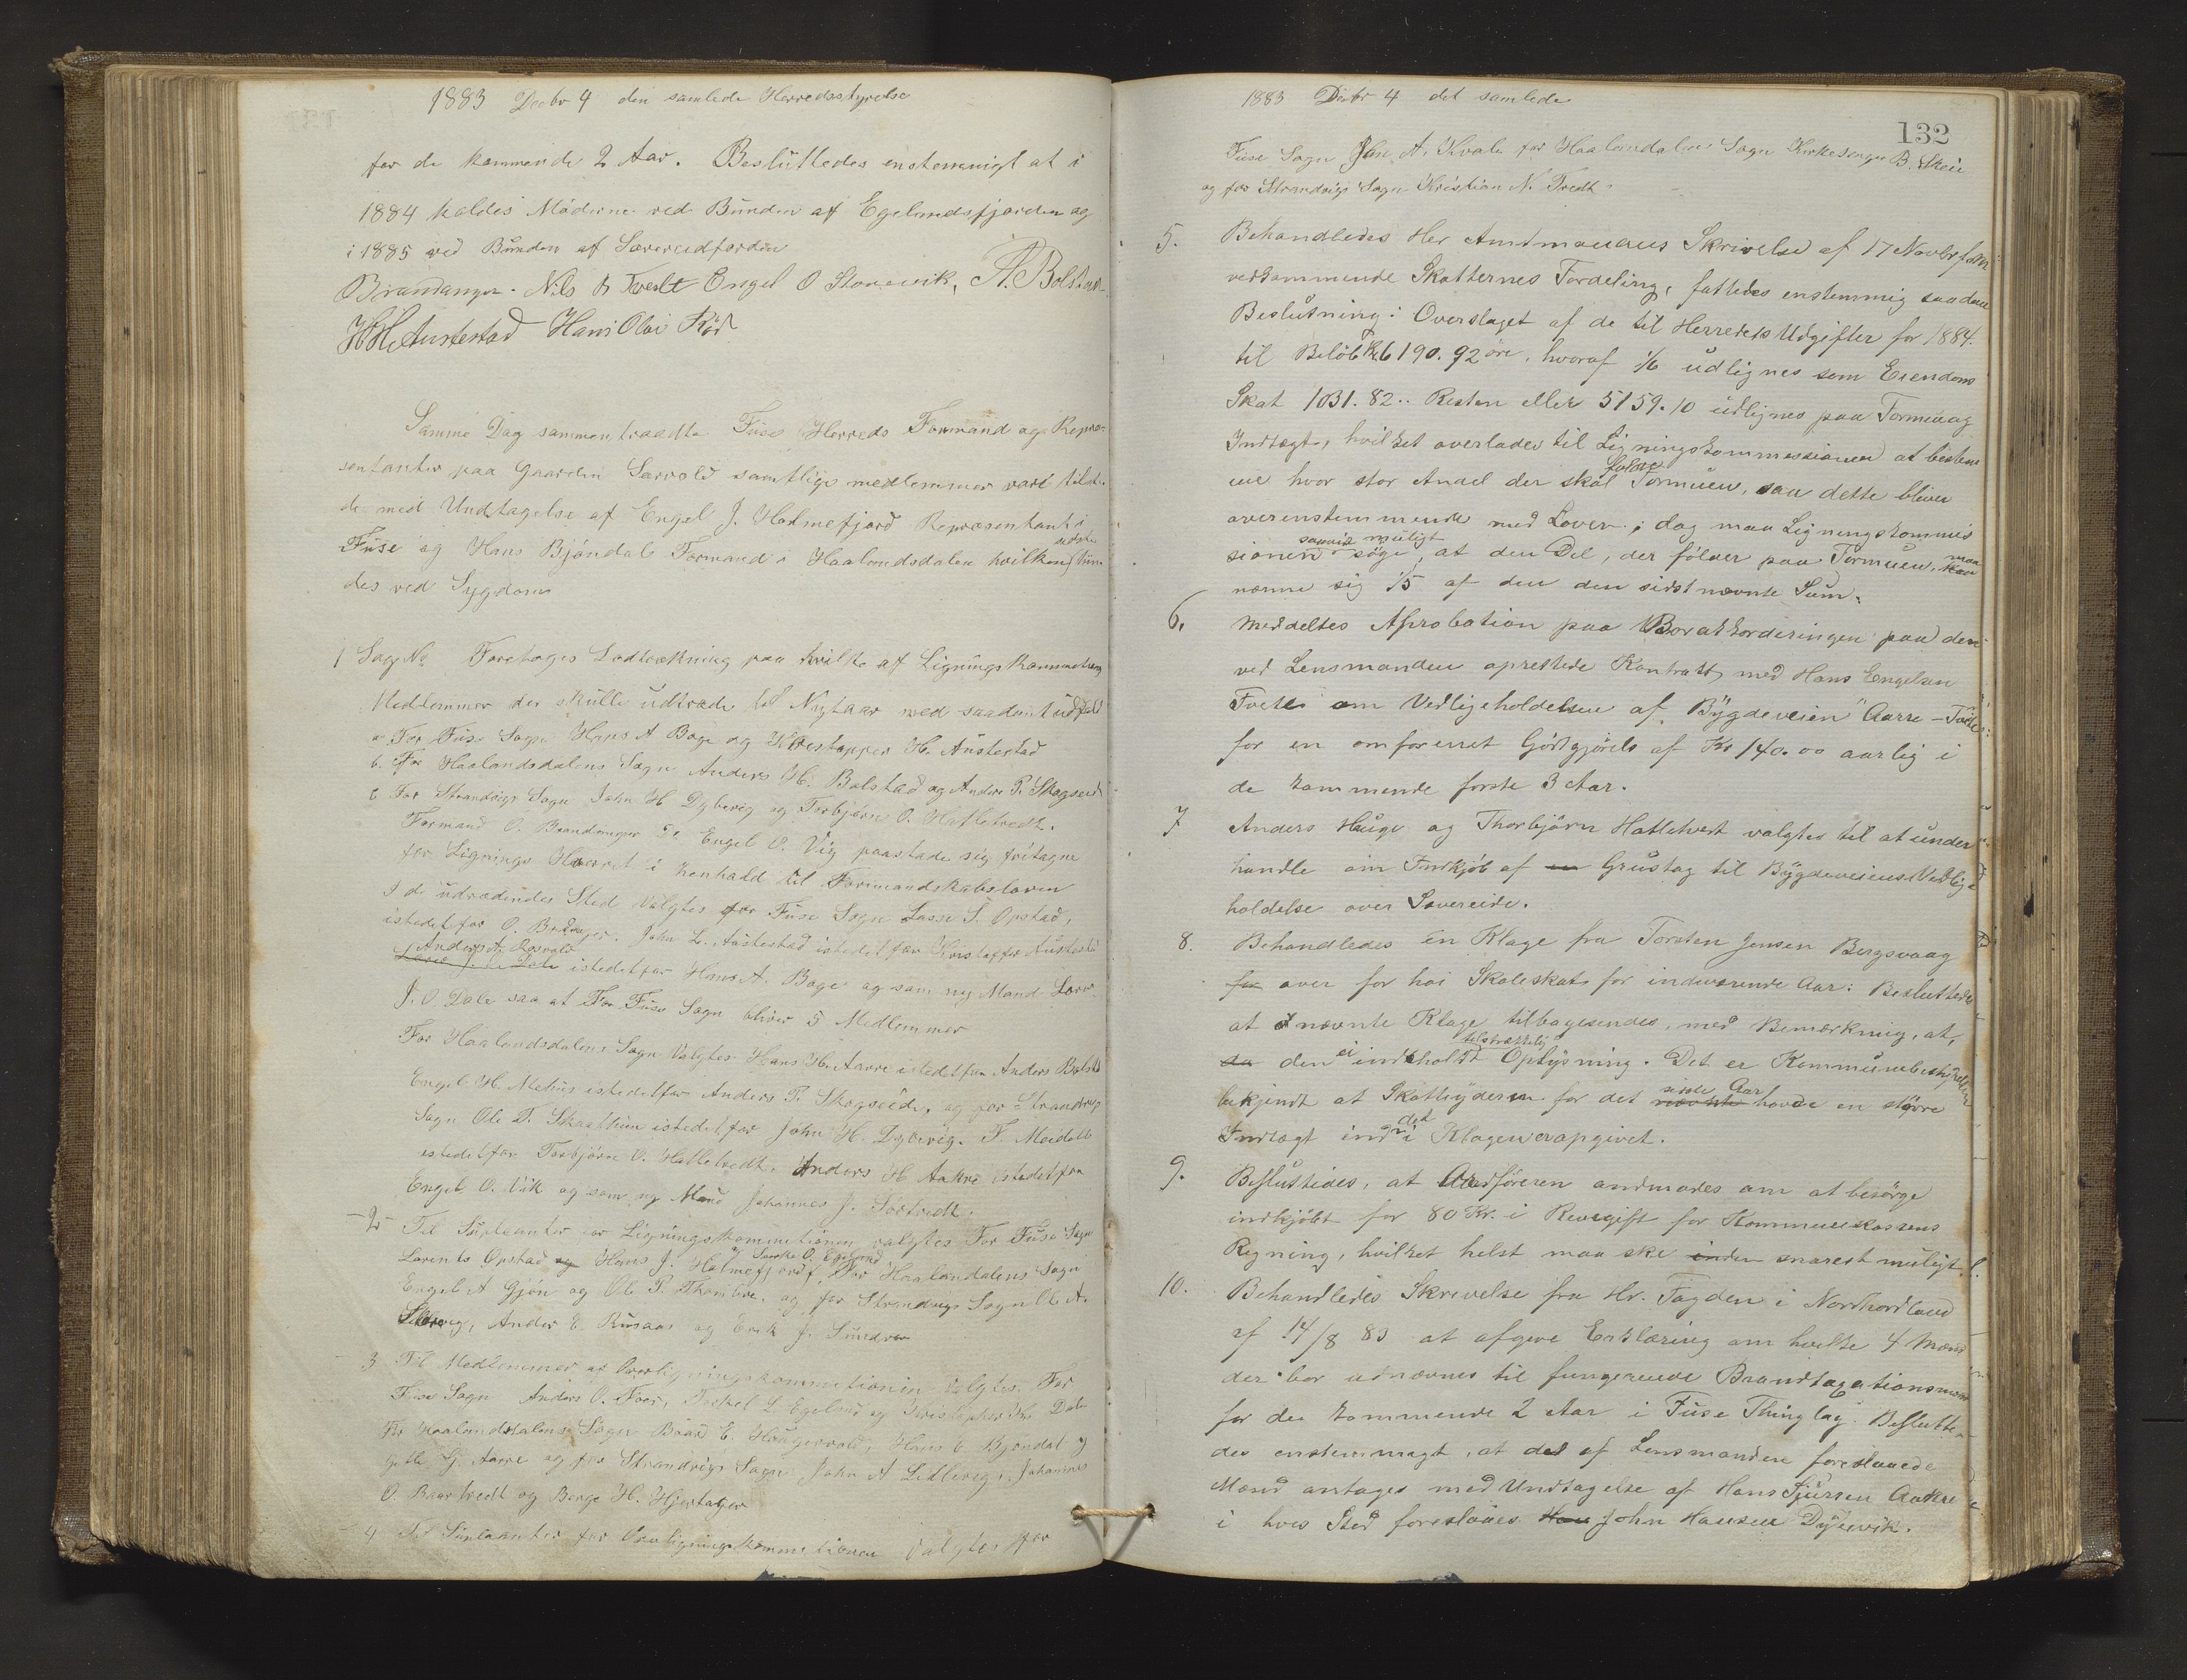 1883 Decbr 4 den samlede Herredsstyrelse
for de kommende 2 Aar. Besluttedes enstemmigt at i
1884 holdes Møderne ved Bunden af Egelandsfjorden og
i 1885 ved Bunden af Sævereidfjorden
Brandanger. Nils Tvedt Engel O Storevik, A. Bolstad
H H Austestad Hans Olai Röd
Samme Dag sammentraadte Fuse Herreds Formænd og Repræ-
sentanter paa Gaarden Sævold samtlige medlemmer vare tilste-
de med Undtagelse af Engel J. Holmefjord Repræsentant i
Fuse og Hans Bjöndal Formand i Haalandsdalen hvilken
des ved Sygdom
1 Sag No Foretoges Lodtrækning paa hvilke af Ligningskommetionens
Medlemmer der skulle udtræde til Nytaar med saadant udfald
a For Fuse Sogn Hans A Bage og Kristopper H. Austestad
b. For Haalandsdalens Sogn Anders H. Bolstad og Anders P. Skogseide
c For Strandvigs Sogn John H Dybevig og Torbjörn O. Hatletvedt.
Formand O. Brandanger Engel O. Vig paastode sig fritagne
for Lignings Hvervet i Henhold til Formandskabsloven
I de udtrædendes Sted Valgtes for Fuse Sogn Lasse S. Opstad,
istedetfor O. Brdanger. John L. Austestad istedetfor Kristoffer Austestad
Anders A.
istedetfor Hans A. Bage og som ny Mand Lars
J. O Dale saa at For Fuse Sogn bliver 5 Medlemmer
For Haalandsdalens Sogn Valgtes Hans H. Aarre istedetfor Anders Bolstad
Engel H. Mehus istedetfor Anders P. Skogseide, og for Strandvigs
Sogn Ole T. Skaathun istedetfor John H. Dybevig. F. Meidell
istedetfor Torbjörn O. Hatletvedt. Anders H Aakre istedetfor
Engel O. Vik og som ny Mand Johannes J. Sörtvedt.
-2- Til Supleanter for Ligningskommetionen valgtes For Fuse Sogn
Lorents Opstad og Hans J. Holmefjord, For Haalandalens Sogn
Engel A Gjön og Ole P. Tkombre. og for Strandvigs Sogn Ole A.
Anders E. Rusaas og Erik J. Sundvor
3 Til Medlemmer af Overligningskommetionen Valgtes For
Fuse Sogn Anders O. Torkel L Egeland og Kristopher Dale
For Haalandsdalens Sogn Baard E. Haugervold, Hans E. Bjöndal og
G. Aarre og for Strandvigs Sogn John A Lillevig, Johannes
O. Baartvedt og Berge H. Hjertager
4 Til Supleanter for Overligningskommetionen Valgtes for
1883 Decbr 4 det samlede
132
Fuse Sogn John A. Kvale for Haalandalens Sogn Kirkesanger B. Skeie
og for Strandvigs Sogn Kristian N. Tvedt.
5. Behandledes Her Amtmanens Skrivelse af 17 Novbr
vedkommende Skatternes Fordeling, fattedes enstemmig saadan
Beslutning: Overslaget af de til Herredets Udgifter for 1884.
til Belöb Kr. 6190.92 öre, hvoraf 1/6 udlignes som Eiendoms
Skat 1031.82.. Resten eller 5159.10 udlignes paa Formue og
Indtægt, hvilket overlades til Ligningskommessionen at bestem
me hvor stor Andel der skal falde Formuen, saa dette bliver
overenstemmende med Loven; dog maa Ligningskommis
sionen saavidt muligt söge, at den Del, der földer paa Formuen, maa
nærme sig 1/5 af den den sidst nævnte Sum.
6. Meddeltes Aprobation paa Borakkorderingen paa den
ved Lensmanden oprettede Kontrakt med Hans Engelsen
om Vedligeholdelsen af Bÿgdeveien Aarre -
for en omforenet Godtgjörels af Kr 140.00 aarlig i
de kommende forste 3 Aar.
7 Anders Hauge og Thorbjörn Hatletvedt valgtes til at under
handle om Indkjöb af en Grustag til Bÿgdeveiens Vedlige
holdelse over Sævereide.
8. Behandledes en Klage fra Torsten Jensen Bergsvaag
for over for hoi Skoleskat for indeværende Aar: Besluttedes
at nævnte Klage tilbagesendes, med Bemærkning, at,
da den ei indeholdt tilstrækkelig Oplysning. Det er Kommunebestyrelsen
bekjendt at Skatteyderen for det sidste Aar havde en större
Indtægt end det i Klagen er opgivet.
9. Besluttedes, at Ordföreren anmodes om at besörge
indkjöbt for 80 Kr. i Revegift for Kommunekassens
Regning, hvilket helst maa ske inden snarest muligt.
10. Behandledes Skrivelse fra Hr. Fogden i Nordhordland
af 14/8 83 at afgive Erklæring om hvilke 4 Mænd
der bor udnævnes til fungerende Brandtaxationsmænd
for de kommende 2 Aar i Fuse Thinglag. Beslutte-
des enstemmigt, at det af Lensmanden foreslaaede
Mænd antages med Undtagelse af Hans Sjursen Aakre
i hvis Sted foreslaaes Han John Hansen Dÿbevik.